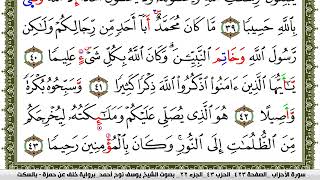 بِٱللَّهِ حَسِيبًا ٣٩ مَّا كَانَ مُحَمَّدٌ أَبَآ أَحَدٍ مِّن رِّجَالِكُمْ وَلَـٰكِن
رَّسُولَ ٱللَّهِ وَخَاتِمَ ٱلنَّبِيِّـۧنَ وَكَانَ ٱللَّهُ بِكُلِّ شَىْءٍ عَلِيمًا ٤٠
يَـٰٓأَيُّهَا ٱلَّذِينَ ءَامَنُوا۟ ٱذْكُرُوا۟ ٱللَّهَ ذِكْرًا كَثِيرًا ٤١ وَسَبِّحُوهُ بُكْرَةً
وَأَصِيلًا ٤٢ هُوَ ٱلَّذِى يُصَلِّى عَلَيْكُمْ وَمَلَـٰٓئِكَتُهُۥ لِيُخْرِجَكُم
مِّنَ ٱلظُّلُمَـٰتِ إِلَى ٱلنُّورِ وَكَانَ بِٱلْمُؤْمِنِينَ رَحِيمًا ٤٣
سورة الأحزاب - الصفحة ٤٢٣ الحزب ٤٣ الجزء ٢٢ - بصوت الشيخ يوسف نوح أحمد برواية خلف عن حمزة - بالسكت